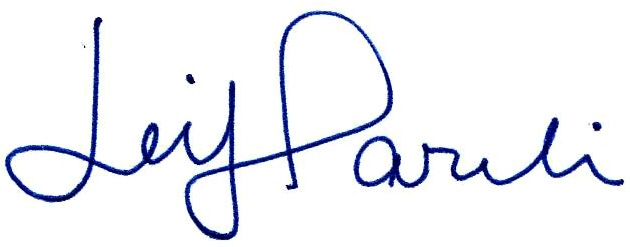 Leif Parsli